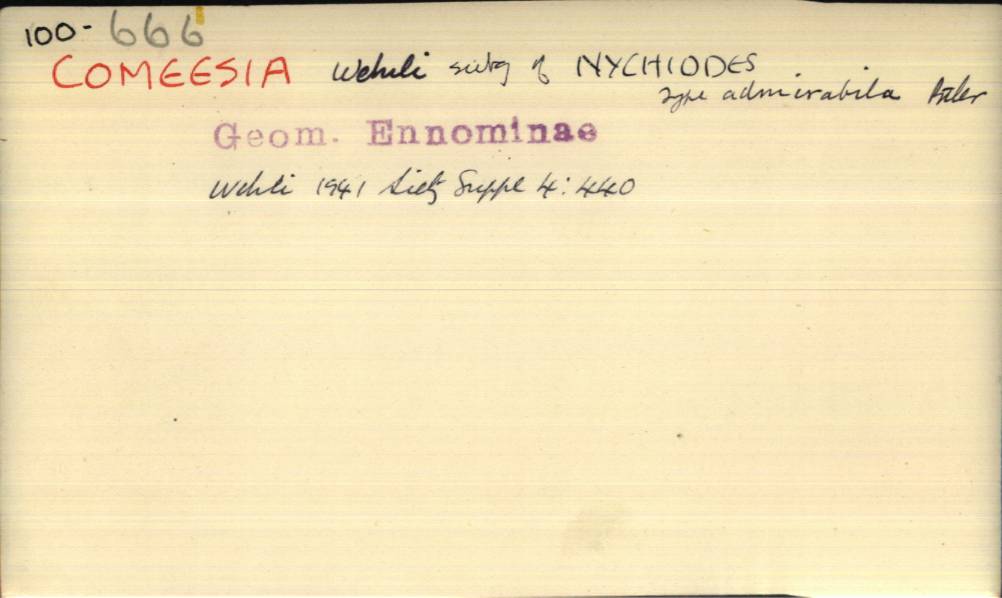 100-666
COMEESIA Wehrli subg of NYCHIODES
type admirabila
Geom. Ennominae
Wehrli 1941 Seitz Suppl 4: 440